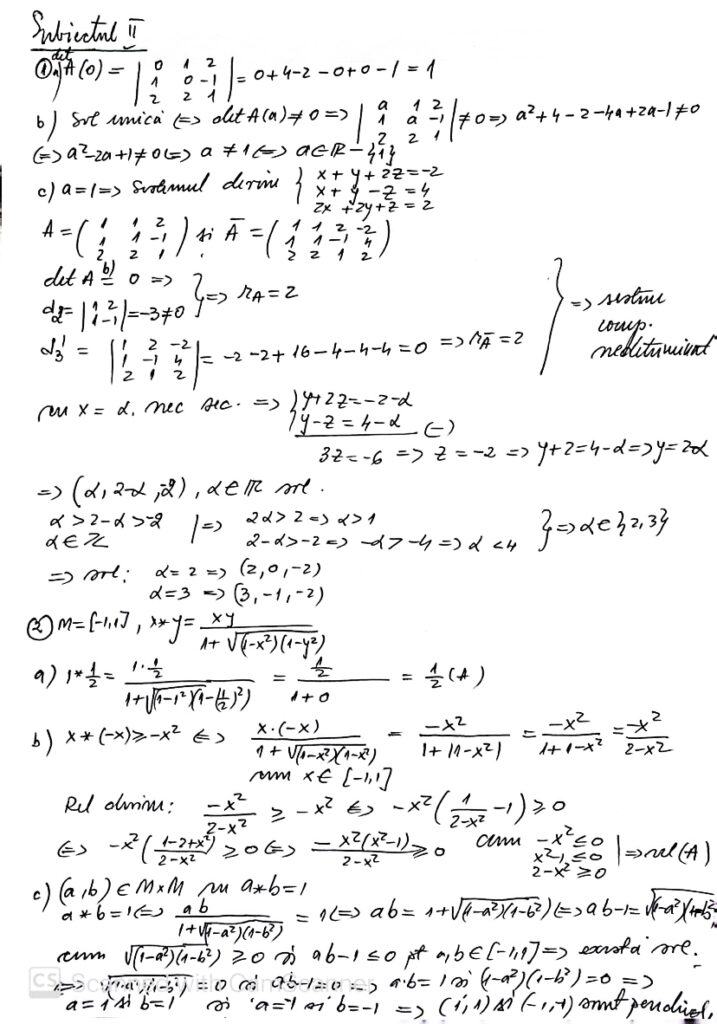 Subiectul II
① a) det A(0) = | 0 1 2 ; 1 0 -1 ; 2 2 1 | = 0+4-2-0+0-1 = 1
b) Sol unică <=> det A(a) ≠ 0 => | a 1 2 ; 1 a -1 ; 2 2 1 | ≠ 0 => a²+4-2-4a+2a-1≠0
<=> a²-2a+1≠0 <=> a ≠ 1 <=> a∈R-{1}
c) a=1 => sistemul devine { x+y+2z=-2 ; x+y-z=4 ; 2x+2y+z=2
A = ( 1 1 2 ; 1 1 -1 ; 2 2 1 ) si Ā = ( 1 1 2 -2 ; 1 1 -1 4 ; 2 2 1 2 )
det A b)= 0 =>
d₂ = | 1 2 ; 1 -1 | = -3≠0 } => rA = 2
d₃' = | 1 2 -2 ; 1 -1 4 ; 2 1 2 | = -2-2+16-4-4-4=0 => rĀ = 2 } => sistem comp. nedeterminat
x = α, nec sec. => { y+2z=-2-α
y-z = 4-α (-)
3z=-6 => z = -2 => y+2=4-α => y=2-α
=> (α, 2-α, -2), α∈R sol.
α>2-α>-2 | => 2α>2 => α>1
α∈Z 2-α>-2 => -α>-4 => α<4 } => α∈{2,3}
=> sol: α=2 => (2,0,-2)
α=3 => (3,-1,-2)
② M=[-1,1], x*y = xy / 1+√(1-x²)(1-y²)
a) 1*1/2 = 1·1/2 / 1+√(1-1²)(1-(1/2)²) = 1/2 / 1+0 = 1/2 (A)
b) x*(-x)≥-x² <=> x·(-x) / 1+√(1-x²)(1-x²) = -x² / 1+|1-x²| = -x² / 1+1-x² = -x² / 2-x²
x∈[-1,1]
Rel devine: -x² / 2-x² ≥ -x² <=> -x²(1 / 2-x² -1)≥0
<=> -x²(1-2+x² / 2-x²)≥0 <=> -x²(x²-1) / 2-x² ≥0 cum -x²≤0
x²-1≤0
2-x²≥0 | => rel (A)
c) (a,b)∈M×M a*b=1
a*b=1 <=> ab / 1+√(1-a²)(1-b²) = 1 <=> ab = 1+√(1-a²)(1-b²) <=> ab-1=√(1-a²)(1-b²)
cum √(1-a²)(1-b²) ≥0 si ab-1≤0 pt a,b∈[-1,1] => există sol.
=> √(1-a²)(1-b²) =0 si ab-1=0 => a·b=1 si (1-a²)(1-b²)=0 =>
a=1 si b=1 si a=-1 si b=-1 => (1,1) si (-1,-1) sunt
CS Scanned with CamScanner